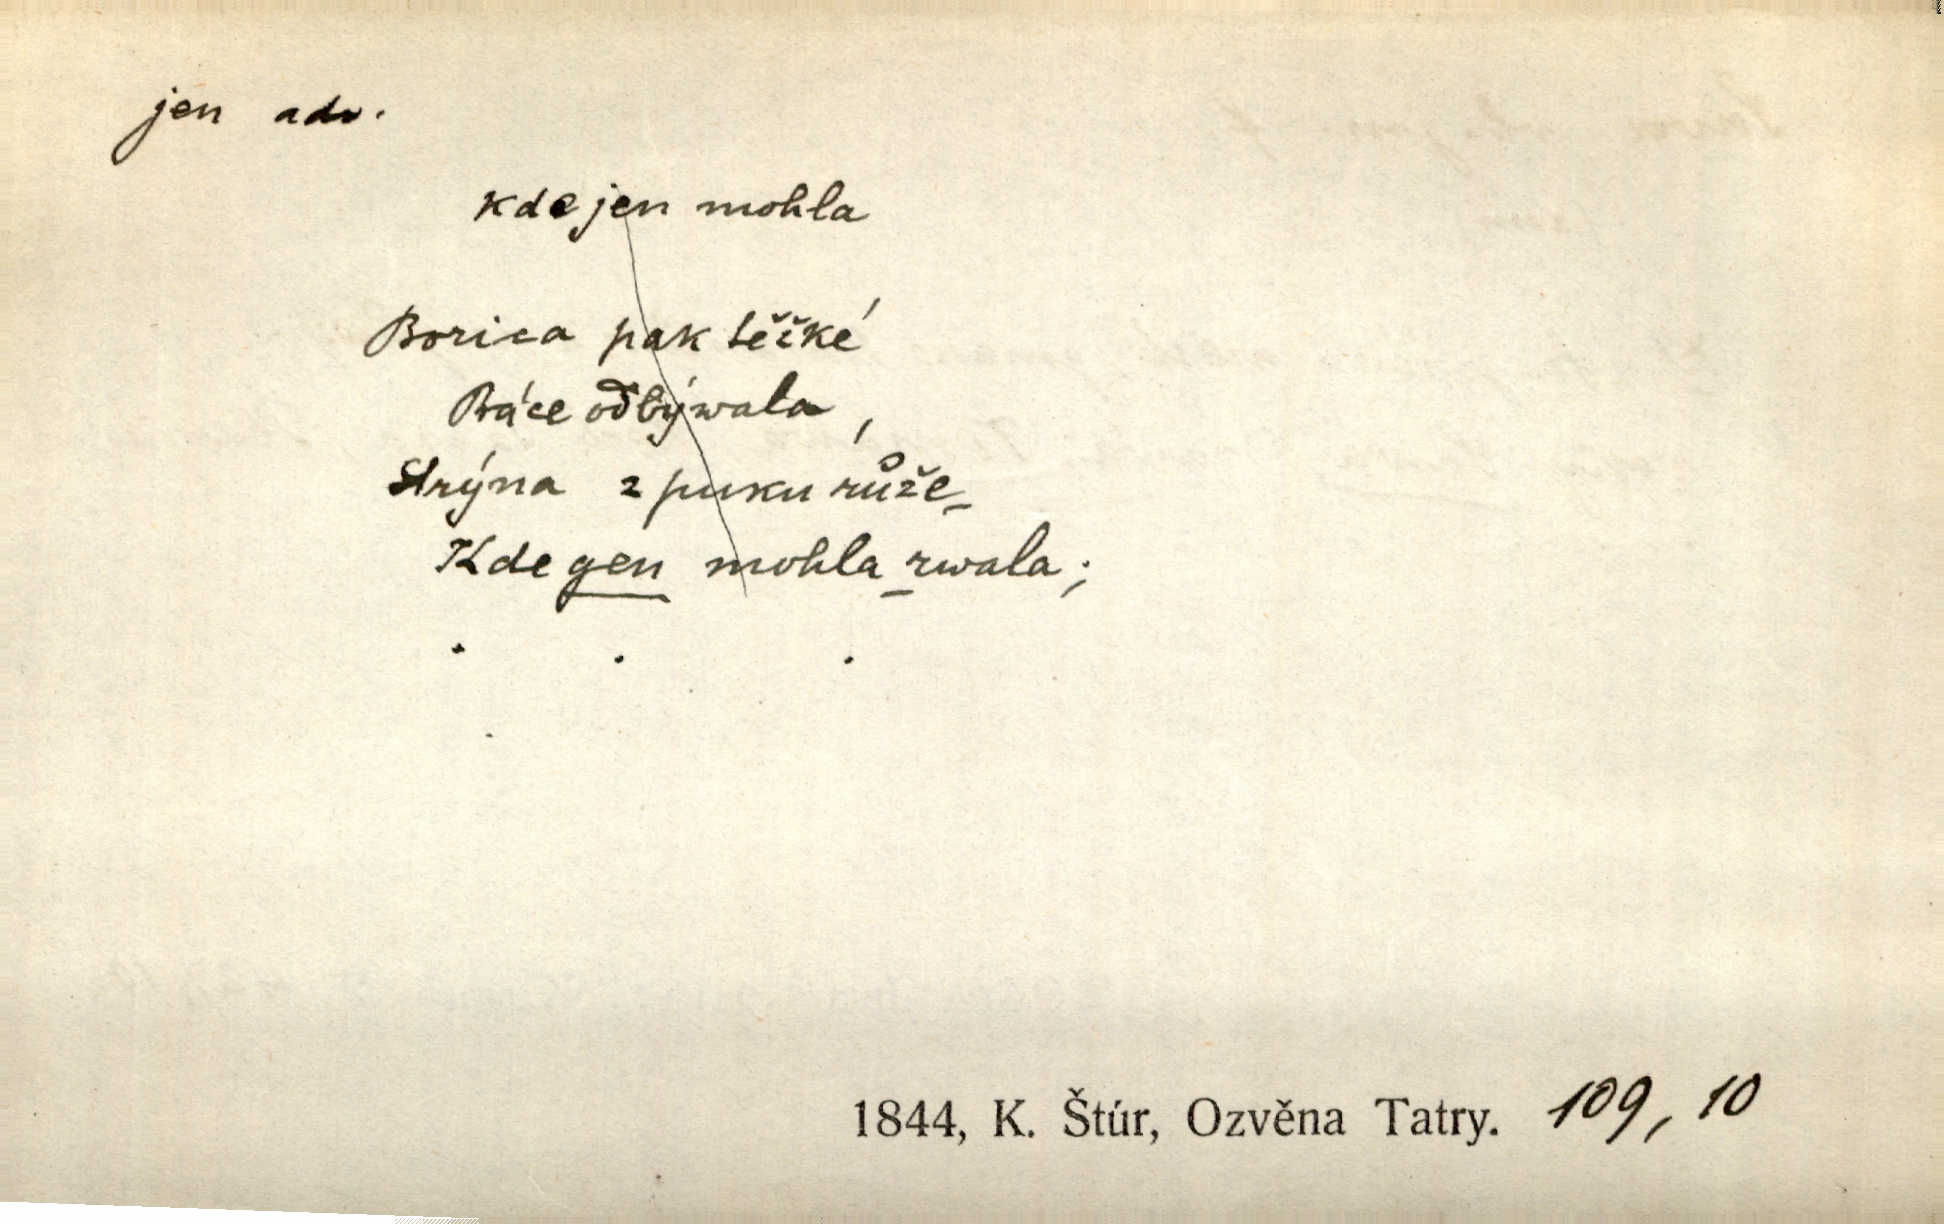 jen adv.
kde jen mohla
Borica pak těžké
Práce odbýwala,
Strýna z puku růže
Kde gen mohla rwala;
. . .
1844, K. Štúr, Ozvěna Tatry. 109, 10